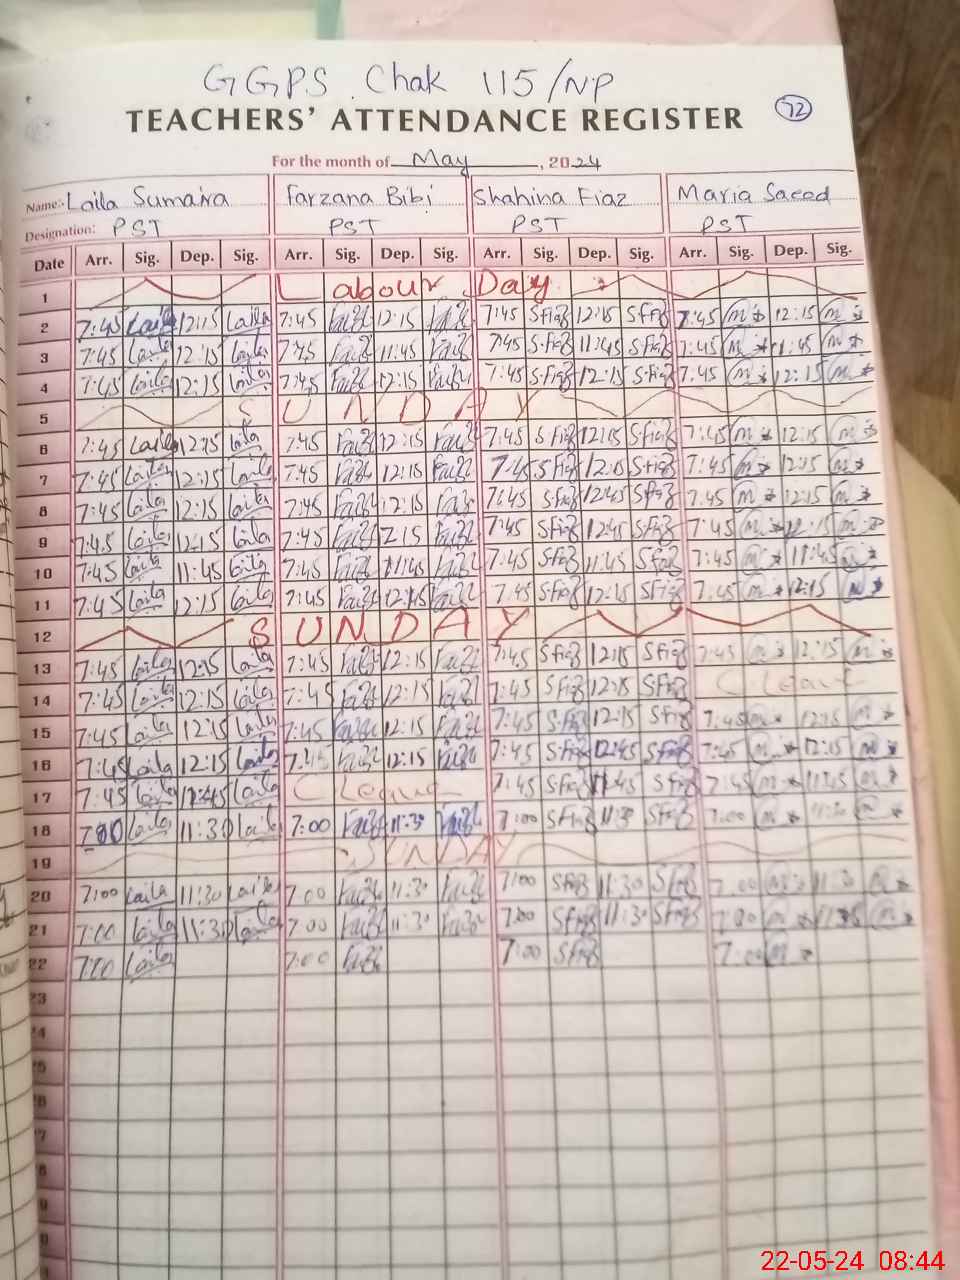 GGPS Chak 115/NP
TEACHERS' ATTENDANCE REGISTER 72
For the month of May, 2024
Name:- Laila Sumaira Farzana Bibi Shahina Fiaz Maria Saeed
Designation: PST PST PST PST
Date Arr. Sig. Dep. Sig. Arr. Sig. Dep. Sig. Arr. Sig. Dep. Sig. Arr. Sig. Dep. Sig.
1 Labour Day
2 7:45 Laila 12:15 Laila 7:45 12:15 7:45 S.Fiaz 12:15 S.Fiaz 7:45 m 12:15 m
3 7:45 Laila 12:15 Laila 7:45 11:45 7:45 S.Fiaz 11:45 S.Fiaz 7:45 m 11:45 m
4 7:45 Laila 12:15 Laila 7:45 12:15 7:45 S.Fiaz 12:15 S.Fiaz 7:45 m 12:15 m
5 SUNDAY
6 7:45 Laila 12:15 Laila 7:45 12:15 7:45 S.Fiaz 12:15 S.Fiaz 7:45 m 12:15 m
7 7:45 Laila 12:15 Laila 7:45 12:15 7:45 S.Fiaz 12:15 S.Fiaz 7:45 m 12:15 m
8 7:45 Laila 12:15 Laila 7:45 12:15 7:45 S.Fiaz 12:45 S.Fiaz 7:45 m 12:15 m
9 7:45 Laila 12:15 Laila 7:45 2:15 7:45 S.Fiaz 12:45 S.Fiaz 7:45 m 12:15 m
10 7:45 Laila 11:45 Laila 7:45 11:45 7:45 S.Fiaz 11:45 S.Fiaz 7:45 m 11:45 m
11 7:45 Laila 12:15 Laila 7:45 12:15 7:45 S.Fiaz 12:15 S.Fiaz 7:45 m 12:15 m
12 SUNDAY
13 7:45 Laila 12:15 Laila 7:45 12:15 7:45 S.Fiaz 12:15 S.Fiaz 7:45 m 12:15 m
14 7:45 Laila 12:15 Laila 7:45 12:15 7:45 S.Fiaz 12:15 S.Fiaz C Leave
15 7:45 Laila 12:15 Laila 7:45 12:15 7:45 S.Fiaz 12:15 S.Fiaz 7:45 m 12:15 m
16 7:45 Laila 12:15 Laila 7:45 12:15 7:45 S.Fiaz 12:45 S.Fiaz 7:45 m 12:15 m
17 7:45 Laila 11:45 Laila C Leave 7:45 S.Fiaz 11:45 S.Fiaz 7:45 m 11:45 m
18 7:00 Laila 11:30 Laila 7:00 11:30 7:00 S.Fiaz 11:30 S.Fiaz 7:00 m 11:30 m
19 SUNDAY
20 7:00 Laila 11:30 Laila 7:00 11:30 7:00 S.Fiaz 11:30 S.Fiaz 7:00 m 11:30 m
21 7:00 Laila 11:30 Laila 7:00 11:30 7:00 S.Fiaz 11:30 S.Fiaz 7:00 m m
22 7:00 Laila 7:00 7:00 S.Fiaz 7:00 m
23
22-05-24 08:44